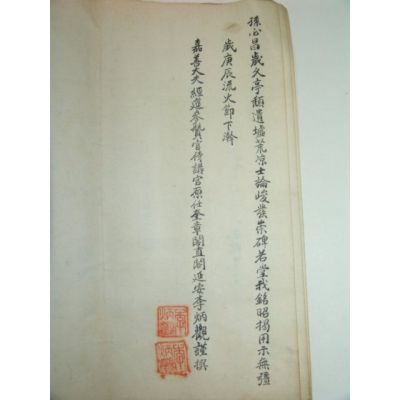 孫必昌歲久亭頹遺墟荒凉士論峻發崇碑若堂我銘昭揭用示無疆
歲庚辰流火節下澣
嘉善大夫經筵參贊官侍講官原任奎章閣直閣延安李炳觀謹撰